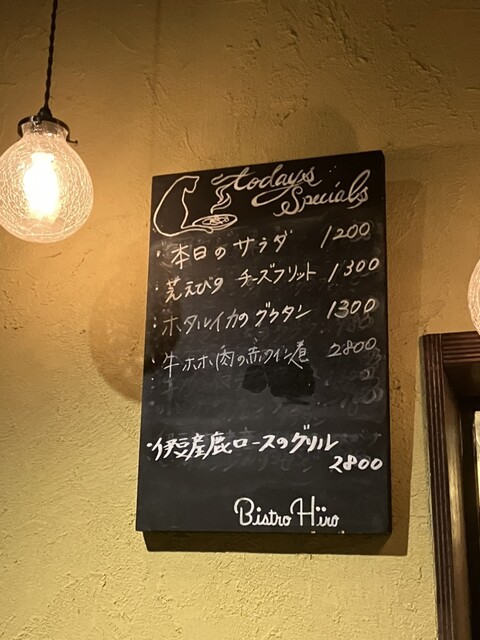 todays
Specials
・本日のサラダ 1200
・芝えびの チーズフリット 1300
・ホタルイカのグラタン 1300
・牛ホホ肉の赤ワイン煮 2800
・伊豆産鹿ロースのグリル
2800
Bistro Hiro